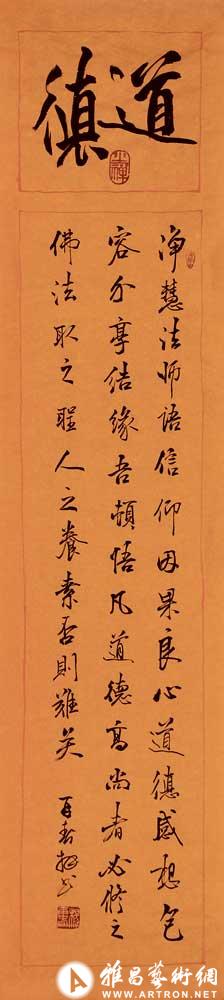 道德
净慧法师语信仰因果良心道德感恩包
容分享结缘吾顿悟凡道德高尚者必修之
佛法取之聖人之養素否則難矣
雅昌藝術網
WWW.ARTRON.NET